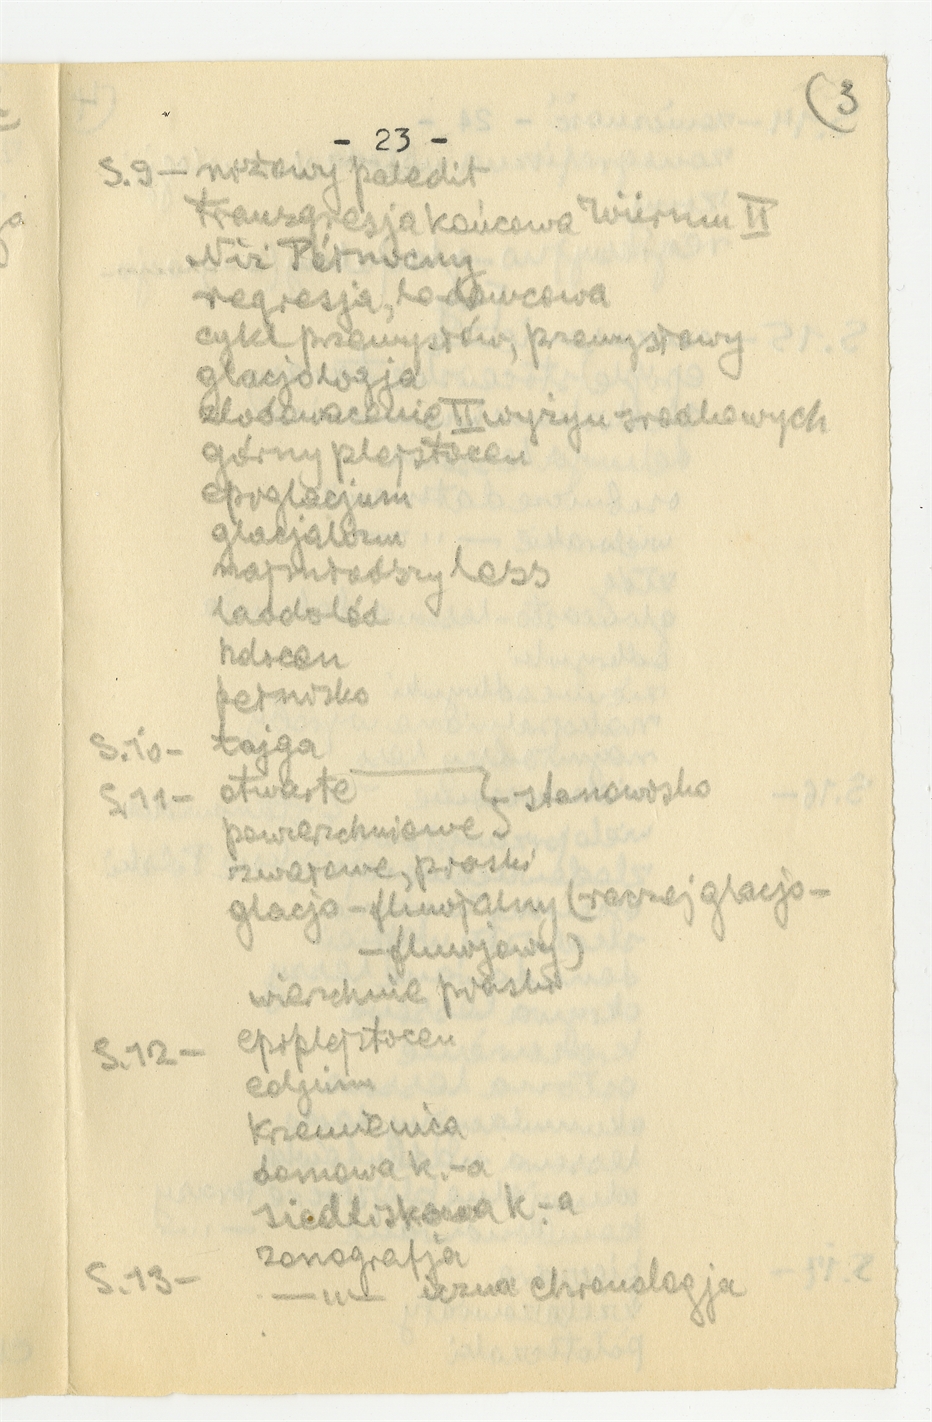 (3
- 23 -
S.9 - nożowy paledit
transgresja końcowa Würmu II
Niż Północny
regresja, lodowcowa
cykl przemysłów, przemysłowy
glacjologja
zlodowacenie II wyżyn środkowych
górny plejstocen
epiglacjum
glacjalizm
najmłodszy less
lądolód
holocen
pełnisko
S.10 - tajga
S.11 - otwarte } - stanowisko
powierzchniowe
zwałowe, piaski
glacjo-fluwjalny (raczej glacjo-
-fluwjowy)
wierzchnie piaski
S.12 - epiplejstocen
eoljum
krzemienica
domowa k.-a
siedliskowa k.-a
S.13 - zonografja
—"— iczna chronologja